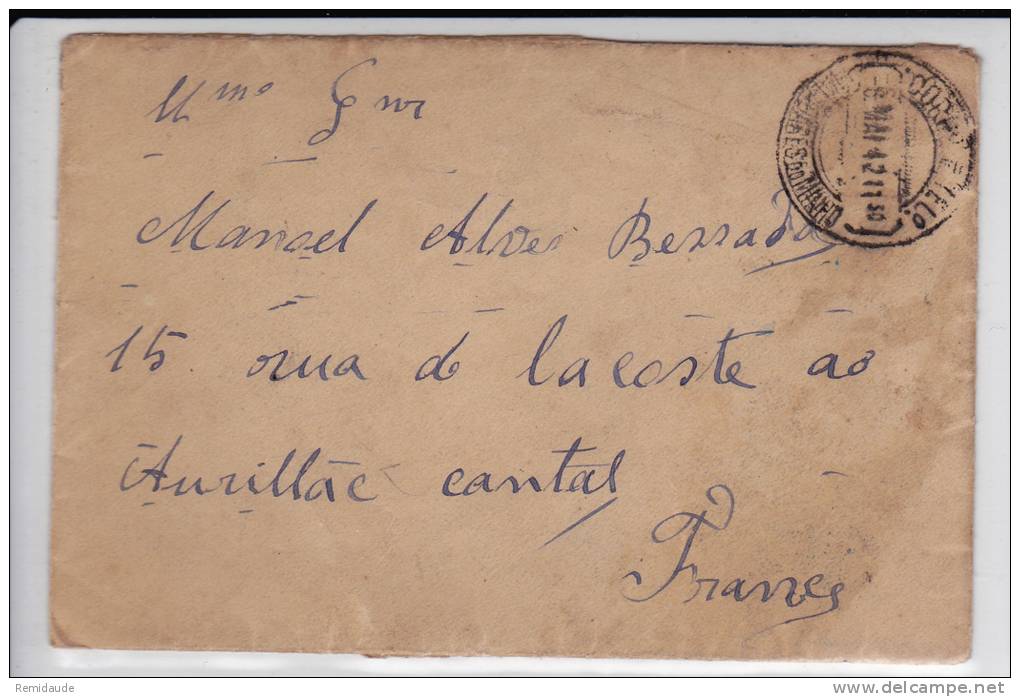 Manoel Alves Bessada
15 rua de lacoste ao
Aurillac cantal
France
MAI 42 11 30
Remidaude
www.delcampe.net